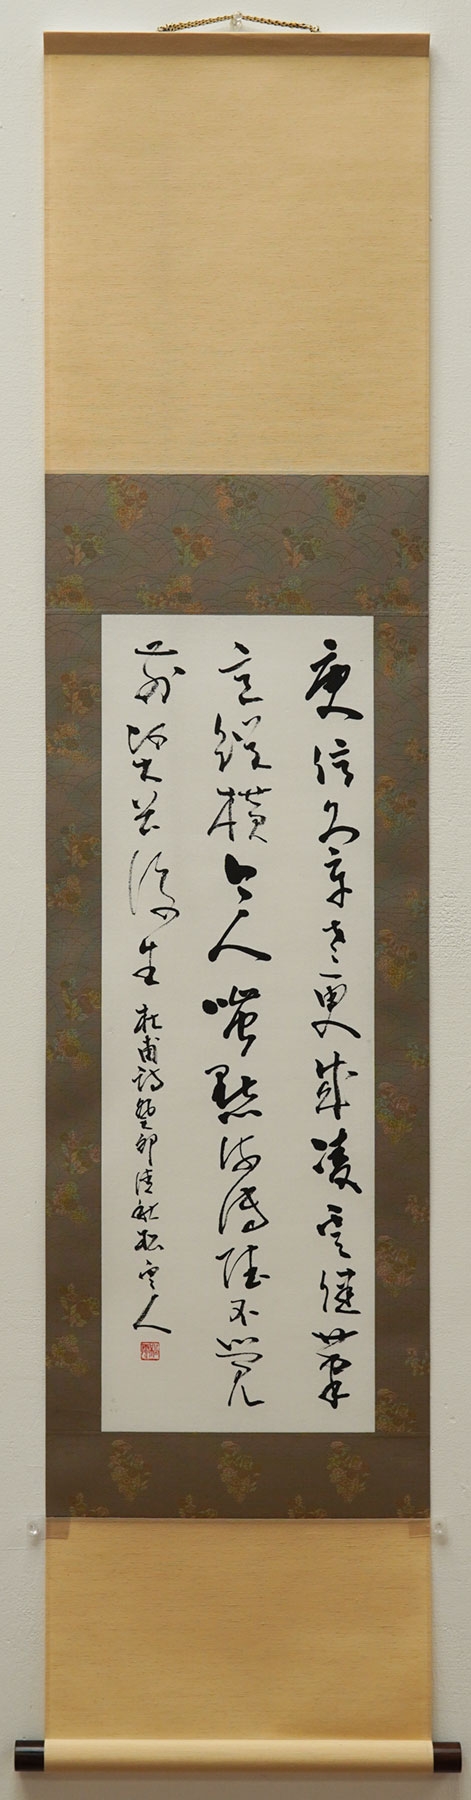 庾信文章老更成凌雲健筆
意縱橫今人嗤點流傳賦不覺
前賢畏後生 杜甫詩癸卯清秋松雲人